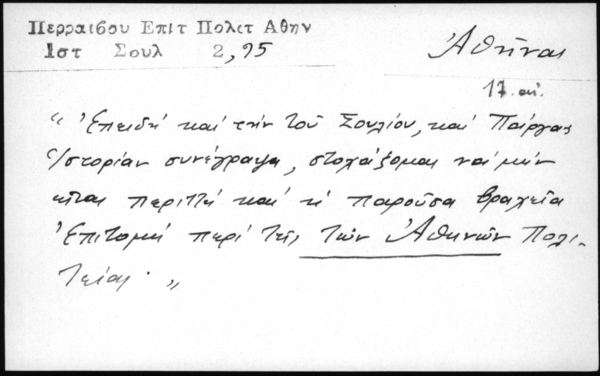 Περραιβου Επιτ Πολιτ Αθην
Ιστ Σουλ 2,95
Ἀθῆναι
17. αι.
“ Ἐπειδή καί τήν τοῦ Σουλίου, καί Πάργας
Ἱστορίαν συνέγραψα, στοχάζομαι νά μήν
εἶναι περιττή καί ἡ παροῦσα βραχεῖα
Ἐπιτομή περί τῆς τῶν Ἀθηνῶν Πολι-
τείας. „